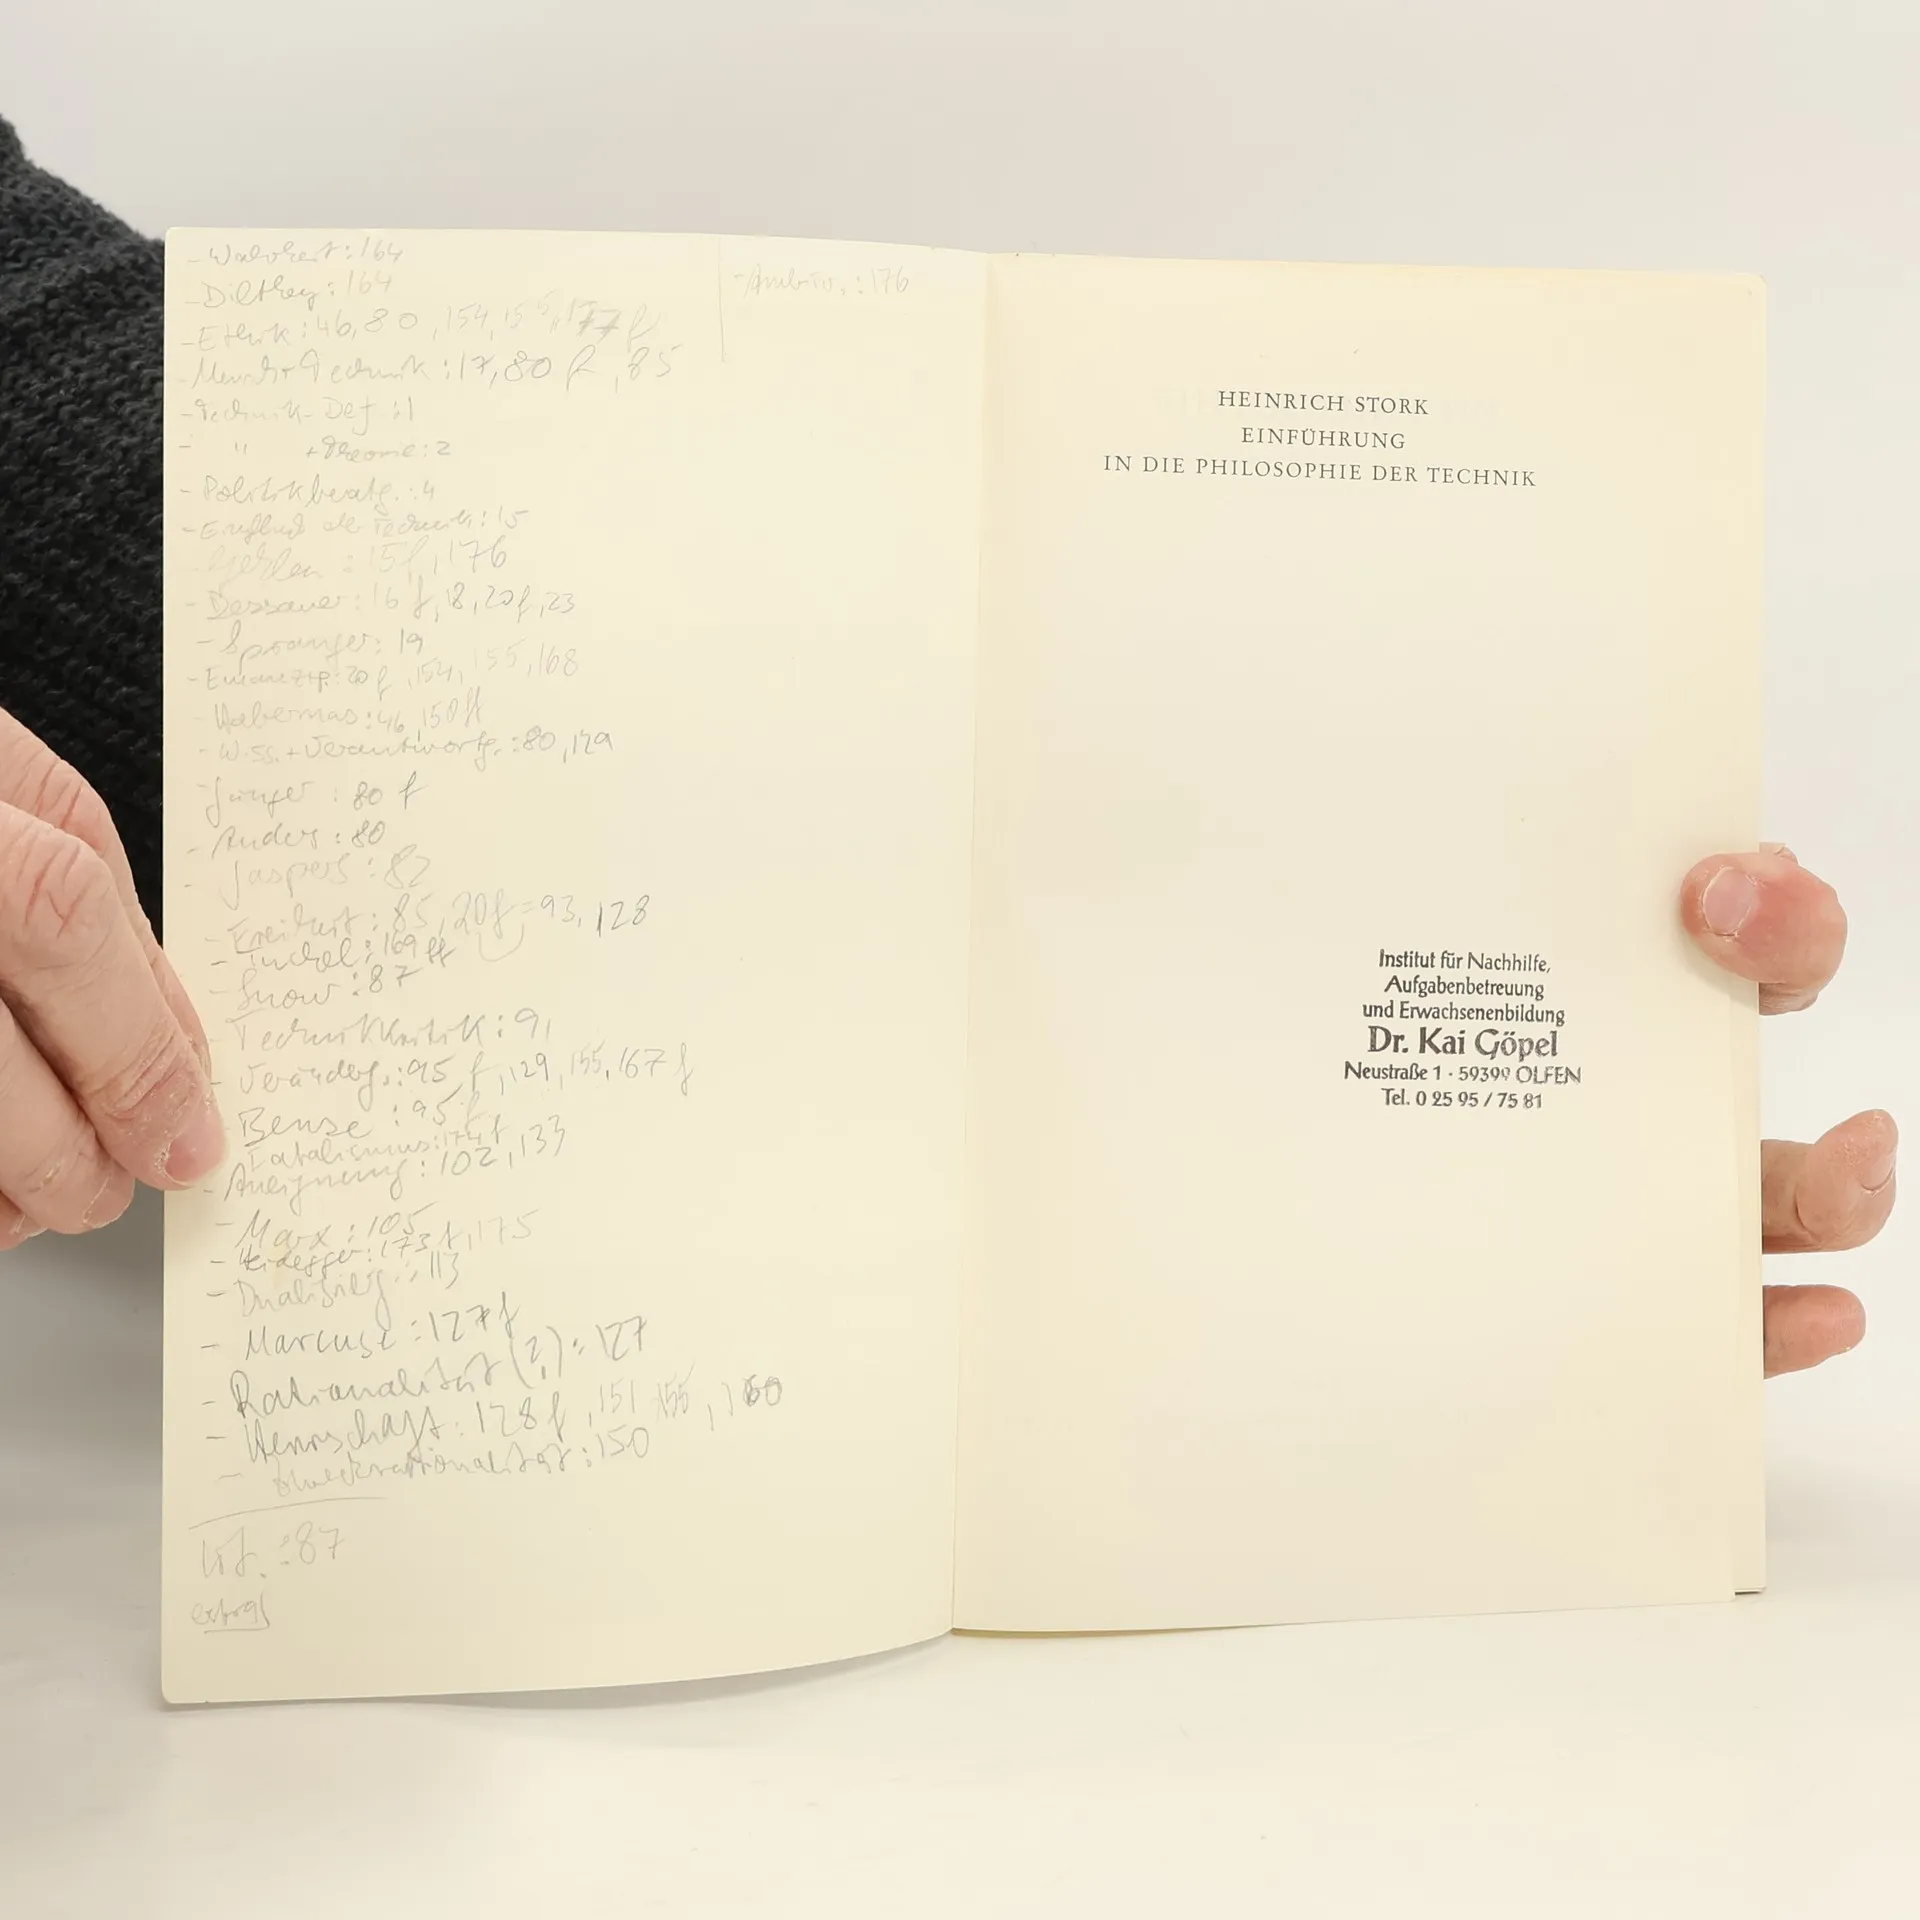 - Wahrheit : 164
- Dilthey : 164
- Ethik : 46, 80, 154, 155, 177 f
- Mensch + Technik : 17, 80 f, 85
- Technik-Def : 1
- " + Theorie : 2
- Politikberatg. : 4
- Einfluß der Technik : 15
Gehlen : 15 f, 176
- Dessauer : 16 f, 18, 20 f, 23
- Spranger : 19
- Emanzip. : 20 f, 154, 155, 168
- Habermas : 46, 150 ff
- Wiss. + Verantwortg. : 80, 129
- Jünger : 80 f
- Anders : 80
- Jaspers : 82
- Freiheit : 85, 20 f = 93, 128
- Tuchel : 169 ff
- Snow : 87
- Technikkritik : 91
- Veränderg. : 95 f, 129, 155, 167 f
- Bense : 95 f
- Fatalismus : 174 f
- Aneignung : 102, 133
- Marx : 105
- Heidegger : 173 f, 175
- : 113
- Marcuse : 127 f
- Rationalität (?) : 127
- Herrschaft : 128 f, 151, 155, 160
- Zweckrationalität : 150
Lit. : 87
- Ambiv. : 176
HEINRICH STORK
EINFÜHRUNG
IN DIE PHILOSOPHIE DER TECHNIK
Institut für Nachhilfe,
Aufgabenbetreuung
und Erwachsenenbildung
Dr. Kai Göpel
Neustraße 1 · 59399 OLFEN
Tel. 0 25 95 / 75 81